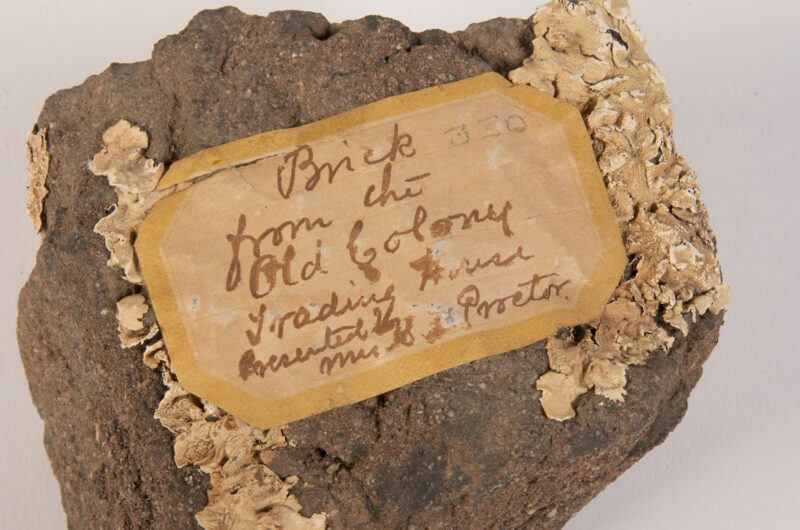 Brick 330
from the
Old Colony
Trading House
Presented by
Mr Proctor.